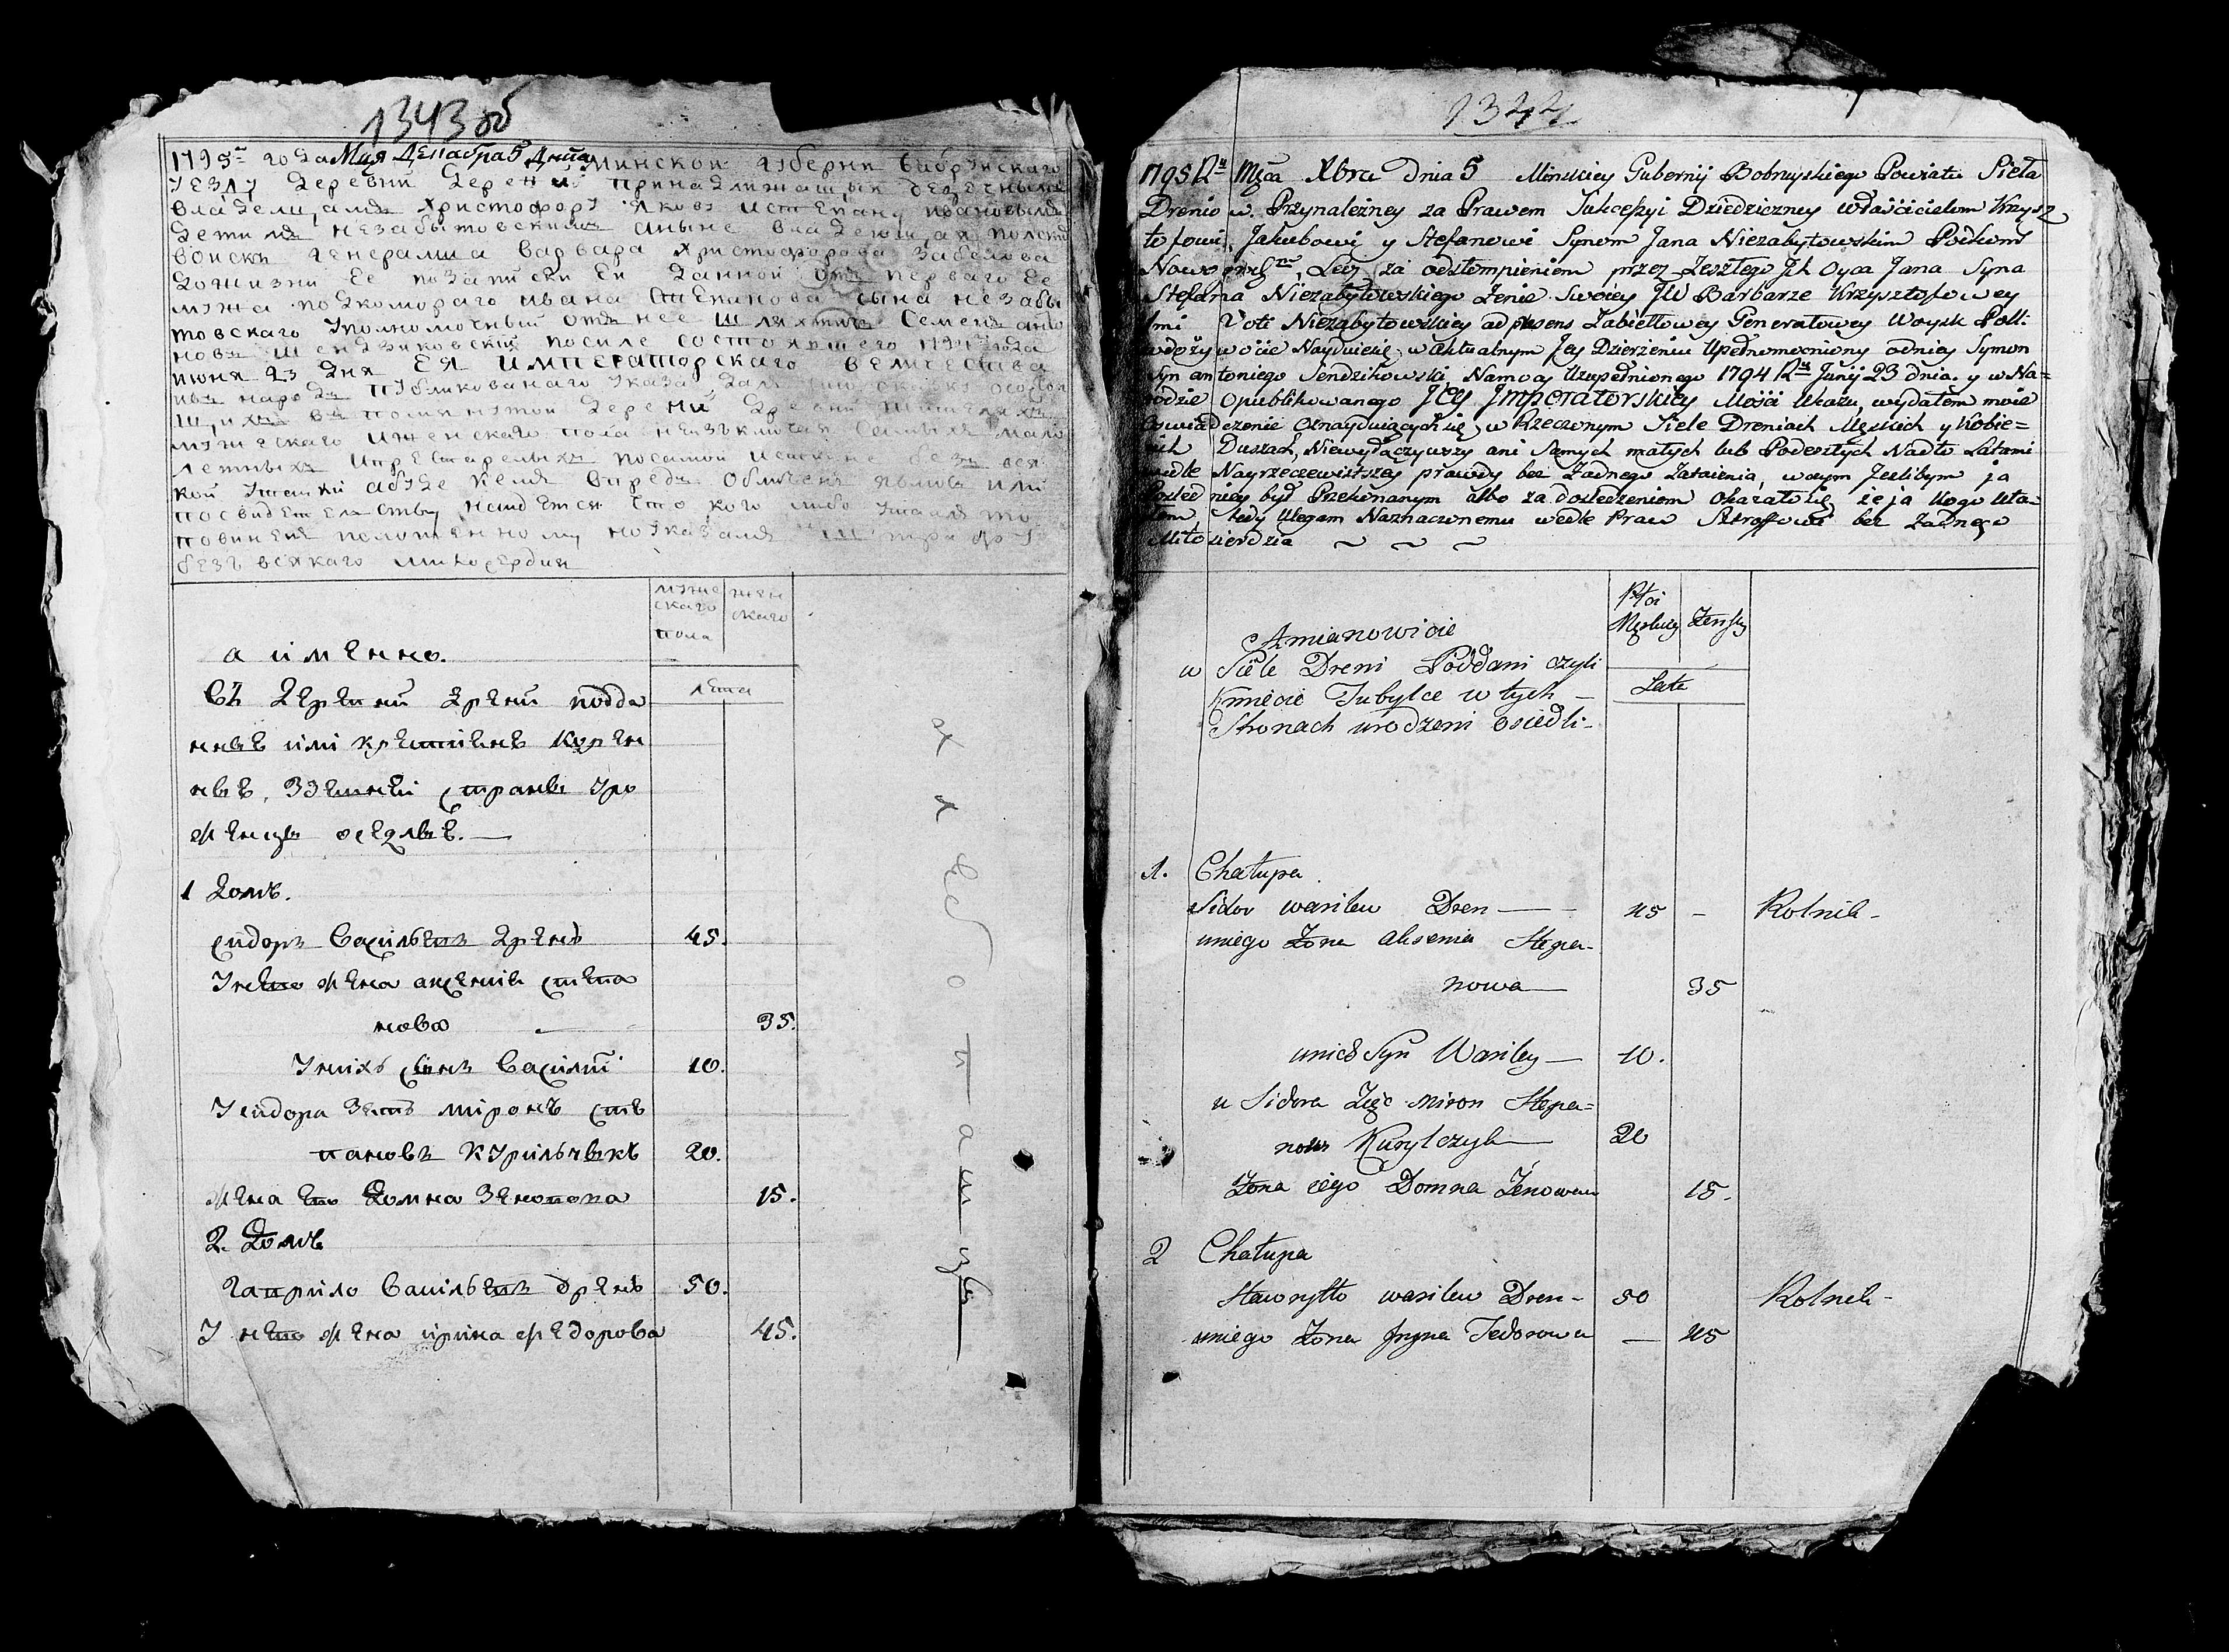 1343 об
1795 года Мая Декабра 5 Дня Минской губерни Бобруйскаго
уезду деревни Дерений принадлижащых
владелицамъ Христофору Якову и Степану Ивановымъ
детимъ незабытовскимъ аныне владеющая полскихъ
войскъ генералша варвара Христофорова Забелова
дожизни ее позаписки ей данной отъ перваго ее
мужа подкомораго ивана Степанова сына незабы
товскаго уполномочный отъ нее шляхтичь Семенъ анто
новъ шендзиковский посиле состоявшего 1794 года
июня 23 дня ЕЯ ИМПЕРАТОРСКАГО ВЕЛИЧЕСТВА
народъ публикованаго указа
помянутой дерений
мужескаго иженскаго пола невыключая самыхъ мало
летныхъ ипрестарелыхъ посамой истинне безъ вся
кой утайки абуде кемъ впредъ обличенъ явлюсь или
посвидетелству найдется что кого либо утаилъ то
повиненъ положенному поуказамъ штрафу
безъ всякаго милосердия
мужескаго пола
женскаго
а имѣнно.
лета
въ деревни дрени подда
нные или крестиене корен
ные, здешнеи страны уро
женцы оседлые.
1 Домъ.
сидоръ Васильевъ Дрень 45.
У него жена аксения степа
нова 35.
У нихъ сынъ Василий 10.
У сидора зеть миронъ сте
пановъ Курильчыкъ 20.
жена его Домна Зенонова 15.
2. Домъ
гаврило Васильевъ дрень 50.
У него жена ирина федорова 45.
1344
1795 Ru Mca Xbra Dnia 5 Minskiey Gubernij Bobruyskiego Powiatu Sieła
Dreniow. Przynależney za Prawem Sukcessyi Dziedziczney właścicielom Krzysz
tofowi, Jakubowi y Stefanowi Synom Jana Niezabytowskim Podkom
Nowogrodgo, Lecz za odstompieniem przez Zeszłego Jch Oyca Jana Syna
Stefana Niezabytowskiego Żenie Swoiey JW Barbarze Krzysztofowey
1mi Voti Niezabytowskiey ad præsens Zabiełłowey Generałowey Woysk Poll:
wdożywocie Nayduiesię w aktualnym Jey Dzierżeniu Upełnomocniony odniey Symon
Syn antoniego Sendzikowski, Namocy Uzupełnionego 1794 Ru Junij 23 dnia. y w Na=
rodzie Opublikowanego JEY Jmperatorskiey Mości Ukazu, wydałem moie
Oswiadczenie Oznayduiących się w Rzeczonym Siele Dreniach Męskich y Kobie=
cich Duszach, Niewyłączywszy ani Samych małych lub Podeszłych Nadto Latami
wedle Nayrzeczewistszey prawdy bez Żadnego Zataienia, w czym Jeslibym ja
Posled niey był Przekonanym albo za dosledzeniem okazało się, że ja kogo Uta=
iłem tedy Ulegam Naznaczonemu wedle Praw Sztroffowi bez Żadnego
Miłosierdzia
Płci
Męskiey Żenskey
Amianowicie
w Siele Dreni Poddani czyli
Lata
Kmiecie Tubylce w tych
Stronach urodzeni osiedli
1. Chałupa
Sidor wasilew Dren 45 Rolnik
uniego Żona aksenia Stepa-
nowa 35
unich Syn Wasiley 10.
u Sidora Zięć Miron Stepa=
now Kurylczyk 20
Żona iego Domna Zenowow 15.
2 Chałupa
Hawryłło wasilew Dren 50 Rolnik
uniego Żona Jryna Fedorowa 45